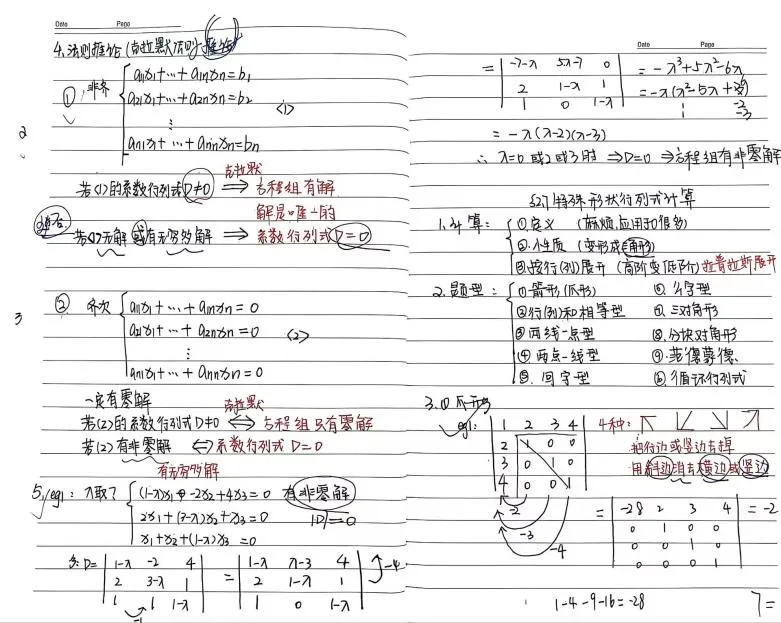 Date Page
4.法则推论(克拉默法则)推论
① 非齐
a₁₁x₁+…+a₁ₙxₙ=b₁
a₂₁x₁+…+a₂ₙxₙ=b₂
⋮
aₙ₁x₁+…+aₙₙxₙ=bₙ
<1>
2
若<1>的系数行列式D≠0 ⟹ 方程组有解
克拉默
解是唯一的
逆否
若<1>无解或有无穷多解 ⟹ 系数行列式D=0
3
② 齐次
a₁₁x₁+…+a₁ₙxₙ=0
a₂₁x₁+…+a₂ₙxₙ=0
⋮
aₙ₁x₁+…+aₙₙxₙ=0
<2>
一定有零解
克拉默
若(2)的系数行列式D≠0 ⟺ 方程组只有零解
若(2)有非零解 ⟺ 系数行列式D=0
有无穷多解
5. eg1: λ取?
(1-λ)x₁-2x₂+4x₃=0 有非零解
2x₁+(3-λ)x₂+x₃=0 |D|=0
x₁+x₂+(1-λ)x₃=0
D= | 1-λ -2 4 | = | 1-λ λ-3 4 | -4
| 2 3-λ 1 | | 2 1-λ 1 |
| 1 1 1-λ | | 1 0 1-λ |
-1
Date Page
= | -7-λ 5λ-7 0 | = -λ³+5λ²-6λ
| 2 1-λ 1 | = -λ(λ²-5λ+6)
| 1 0 1-λ | 1 -2
1 -3
= -λ(λ-2)(λ-3)
∴ λ=0或2或3时 ⟹D=0 ⟹方程组有非零解
§2.7 特殊形状行列式计算
1.计算: ①定义 (麻烦,应用于0很多)
②小性质 (变形成三角形)
③按行(列)展开 (高阶变低阶)拉普拉斯展开
2.题型: ①箭形(爪形) ⑥ 么字型
②行(列)和相等型 ⑦ 三对角形
③两线一点型 ⑧ 分块对角形
④ 两点一线型 ⑨ 范德蒙德
⑤ 同字型 ⑩ 循环行列式
3. ①爪形
eg1: | 1 2 3 4 | 4种: ↖ ↙ ↘ ↗
| 2 1 0 0 | 把行边或竖边去掉
| 3 0 1 0 | 用斜边消去横边或竖边
| 4 0 0 1 |
-2
-3
-4
= | -28 2 3 4 | =-2
| 0 1 0 0 |
| 0 0 1 0 |
| 0 0 0 1 |
1-4-9-16=-28
7=